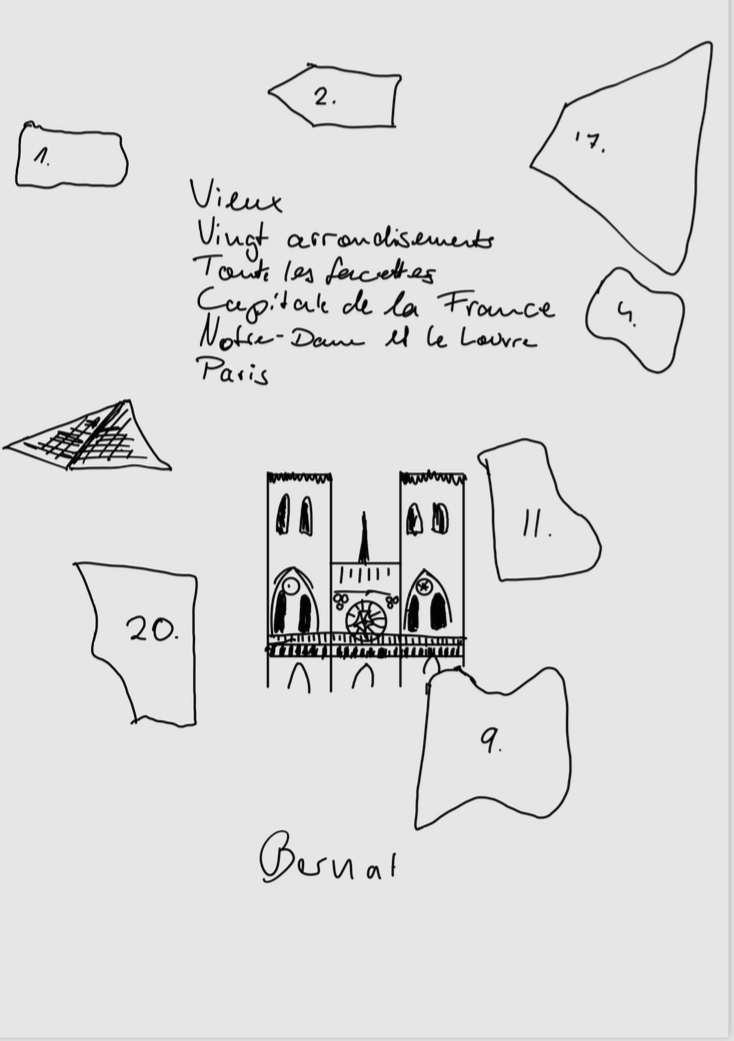 2.
17.
1.
Vieux
Vingt arrondisements
Toute les facettes
Capitale de la France
Notre-Dame et le Louvre
Paris
4.
11.
20.
9.
Bernat